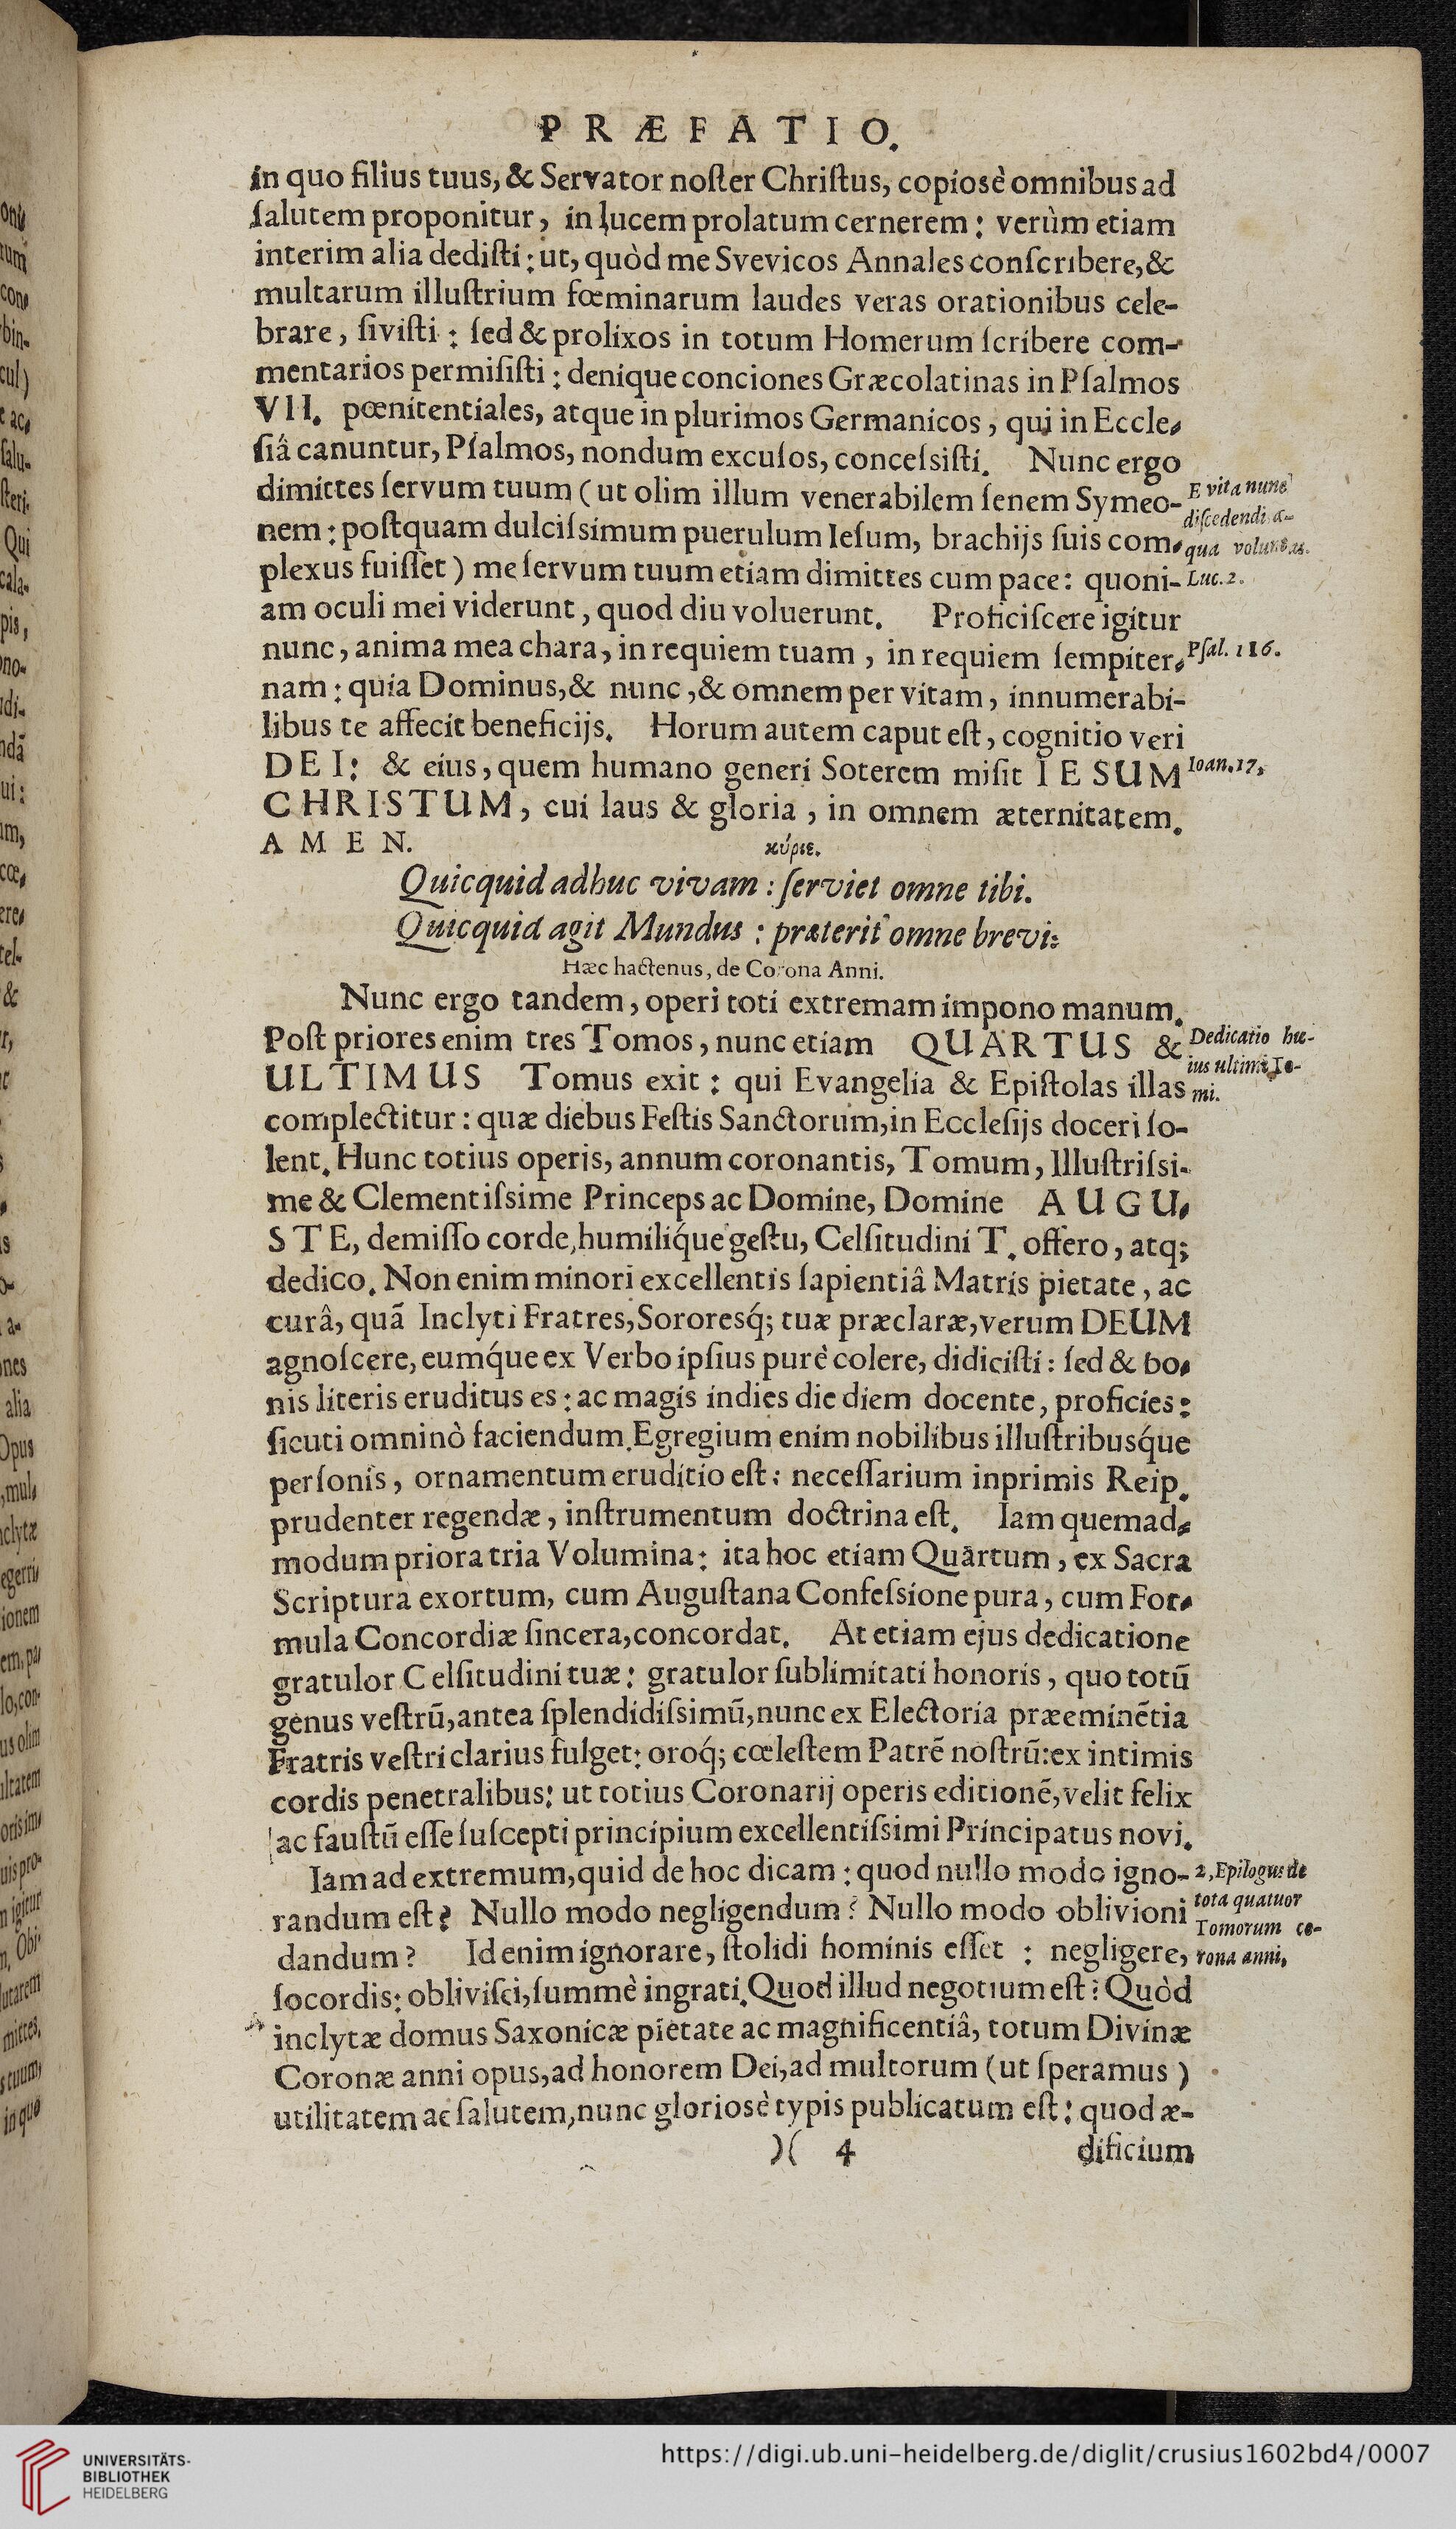 PRÆFATIO.
in quo filius tuus, & Servator noſter Chriſtus, copiosè omnibus ad
ſalutem proponitur, in lucem prolatum cernerem: verùm etiam
interim alia dediſti: ut, quòd me Svevicos Annales conſcribere, &
multarum illuſtrium fœminarum laudes veras orationibus cele-
brare, ſiviſti: ſed & prolixos in totum Homerum ſcribere com-
mentarios permiſiſti: denique conciones Græcolatinas in Pſalmos
VII. pœnitentiales, atque in plurimos Germanicos, qui in Eccle-
ſiâ canuntur, Pſalmos, nondum excuſos, conceſsiſti. Nunc ergo
dimittes ſervum tuum (ut olim illum venerabilem ſenem Symeo-
E vita nunc
diſcedendi æ-
nem: poſtquam dulciſsimum puerulum Ieſum, brachijs ſuis com-
qua voluntas.
plexus fuiſſet) me ſervum tuum etiam dimittes cum pace: quoni-
Luc. 2.
am oculi mei viderunt, quod diu voluerunt. Proficiſcere igitur
nunc, anima mea chara, in requiem tuam, in requiem ſempiter-
Pſal. 116.
nam: quia Dominus, & nunc, & omnem per vitam, innumerabi-
libus te affecit beneficijs. Horum autem caput eſt, cognitio veri
DEI: & eius, quem humano generi Soterem miſit IESUM
Ioan. 17.
CHRISTUM, cui laus & gloria, in omnem æternitatem.
AMEN.
κύριε.
Quicquid adhuc vivam: ſerviet omne tibi.
Quicquid agit Mundus: præterit omne brevi:
Hæc hactenus, de Corona Anni.
Nunc ergo tandem, operi toti extremam impono manum.
Poſt priores enim tres Tomos, nunc etiam QUARTUS &
Dedicatio hu-
ius ultimi To-
mi.
ULTIMUS Tomus exit: qui Evangelia & Epiſtolas illas
complectitur: quæ diebus Feſtis Sanctorum, in Eccleſijs doceri ſo-
lent. Hunc totius operis, annum coronantis, Tomum, Illuſtriſsi-
me & Clementiſsime Princeps ac Domine, Domine AUGU-
STE, demiſſo corde, humiliq́ue geſtu, Celſitudini T. offero, atq;
dedico. Non enim minori excellentis ſapientiâ Matris pietate, ac
curâ, quã Inclyti Fratres, Sororesq́; tuæ præclaræ, verum DEUM
agnoſcere, eumq́ue ex Verbo ipſius purè colere, didiciſti: ſed & bo-
nis literis eruditus es: ac magis indies die diem docente, proficies:
ſicuti omninò faciendum. Egregium enim nobilibus illuſtribusq́ue
perſonis, ornamentum eruditio eſt: neceſſarium inprimis Reip.
prudenter regendæ, inſtrumentum doctrina eſt. Iam quemad-
modum priora tria Volumina: ita hoc etiam Quartum, ex Sacra
Scriptura exortum, cum Auguſtana Confeſsione pura, cum For-
mula Concordiæ ſincera, concordat. At etiam ejus dedicatione
gratulor Celſitudini tuæ: gratulor ſublimitati honoris, quo totũ
genus veſtrũ, antea ſplendidiſsimũ, nunc ex Electoria præeminẽtia
Fratris veſtri clarius fulget: oroq́; cœleſtem Patrẽ noſtrũ: ex intimis
cordis penetralibus: ut totius Coronarij operis editionẽ, velit felix
ac fauſtũ eſſe ſuſcepti principium excellentiſsimi Principatus novi.
Iam ad extremum, quid de hoc dicam: quod nullo modo igno-
2, Epilogus de
tota quatuor
Tomorum co-
rona anni,
randum eſt? Nullo modo negligendum? Nullo modo oblivioni
dandum? Id enim ignorare, ſtolidi hominis eſſet: negligere,
ſocordis: obliviſci, ſummè ingrati. Quod illud negotium eſt? Quòd
inclytæ domus Saxonicæ pietate ac magnificentiâ, totum Divinæ
Coronæ anni opus, ad honorem Dei, ad multorum (ut ſperamus)
utilitatem ac ſalutem, nunc gloriosè typis publicatum eſt: quod æ-
)( 4 dificium
UNIVERSITÄTS-
BIBLIOTHEK
HEIDELBERG
https://digi.ub.uni-heidelberg.de/diglit/crusius1602bd4/0007